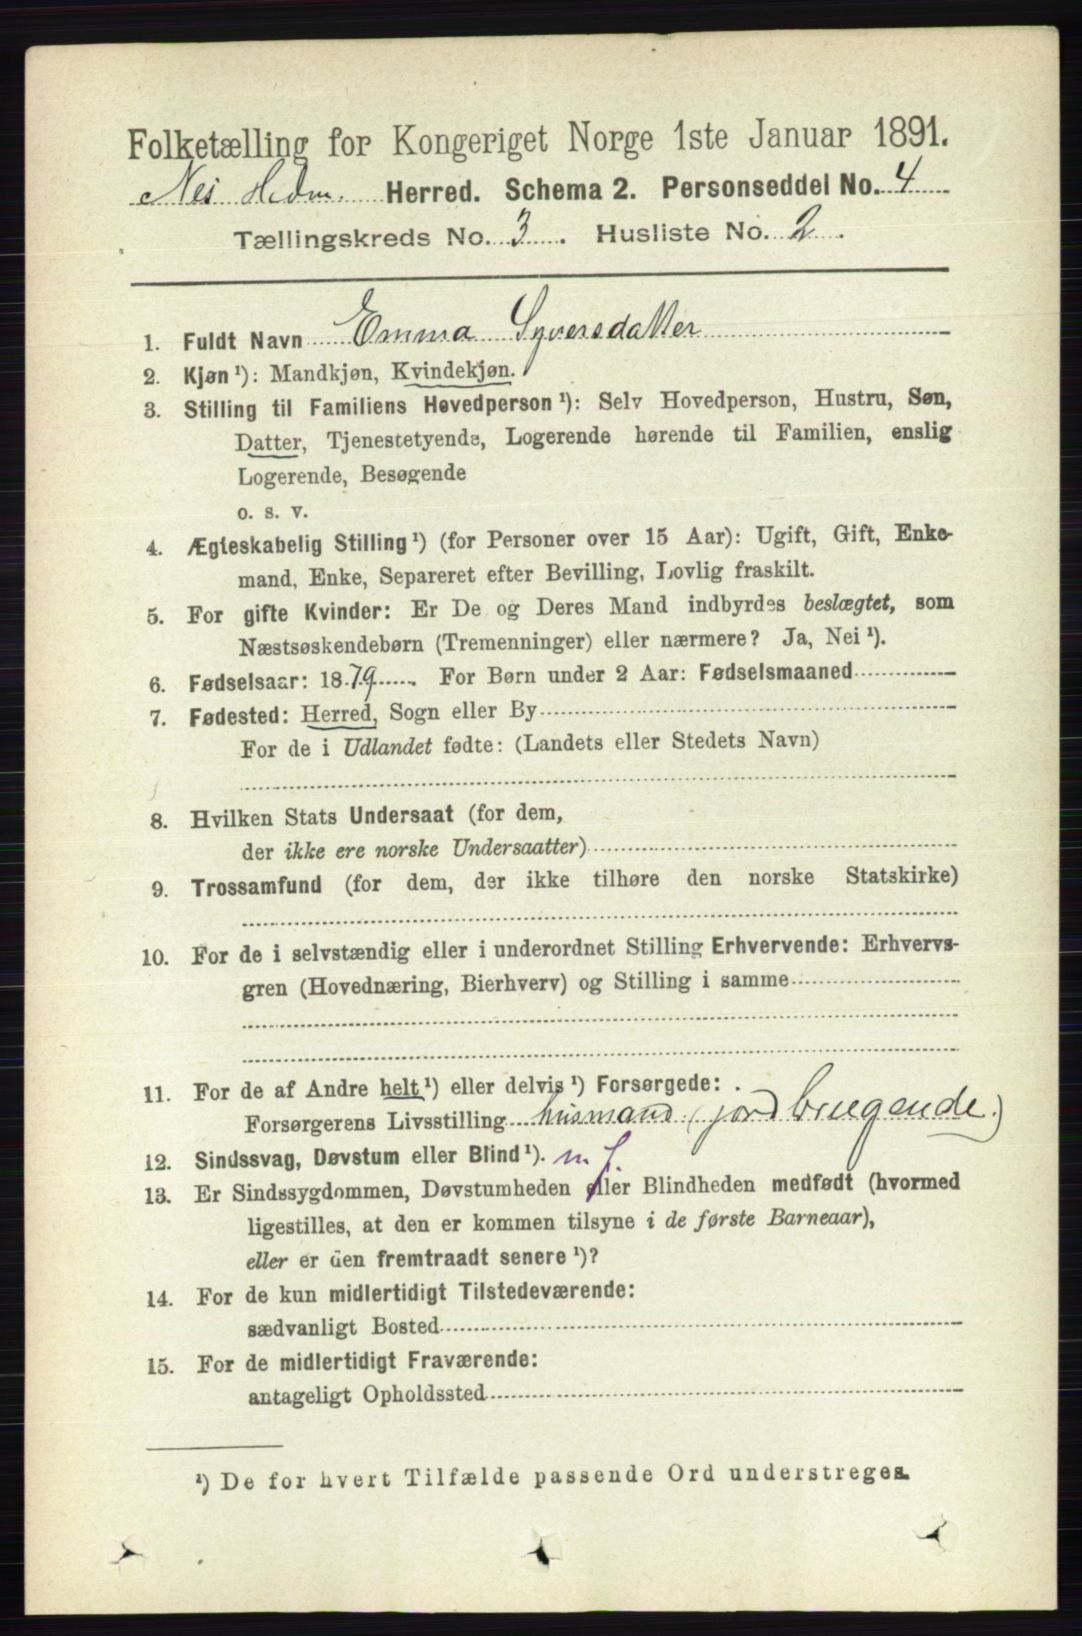 Folketælling for Kongeriget Norge 1ste Januar 1891.
Nes Hedm. Herred. Schema 2. Personseddel No. 4
Tællingskreds No. 3. Husliste No. 2.
1. Fuldt Navn Emma Syversdatter
2. Kjøn ¹): Mandkjøn, Kvindekjøn.
3. Stilling til Familiens Hovedperson ¹): Selv Hovedperson, Hustru, Søn,
Datter, Tjenestetyende, Logerende hørende til Familien, enslig
Logerende, Besøgende
o. s. v.
4. Ægteskabelig Stilling ¹) (for Personer over 15 Aar): Ugift, Gift, Enke-
mand, Enke, Separeret efter Bevilling, Lovlig fraskilt.
5. For gifte Kvinder: Er De og Deres Mand indbyrdes beslægtet, som
Næstsøskendebørn (Tremenninger) eller nærmere? Ja, Nei ¹).
6. Fødselsaar: 1879. For Børn under 2 Aar: Fødselsmaaned
7. Fødested: Herred, Sogn eller By
For de i Udlandet fødte: (Landets eller Stedets Navn)
8. Hvilken Stats Undersaat (for dem,
der ikke ere norske Undersaatter)
9. Trossamfund (for dem, der ikke tilhøre den norske Statskirke)
10. For de i selvstændig eller i underordnet Stilling Erhvervende: Erhvervs-
gren (Hovednæring, Bierhverv) og Stilling i samme
11. For de af Andre helt ¹) eller delvis ¹) Forsørgede:
Forsørgerens Livsstilling husmand (jordbrugende.)
12. Sindssvag, Døvstum eller Blind ¹).
13. Er Sindssygdommen, Døvstumheden eller Blindheden medfødt (hvormed
ligestilles, at den er kommen tilsyne i de første Barneaar),
eller er den fremtraadt senere ¹)?
14. For de kun midlertidigt Tilstedeværende:
sædvanligt Bosted
15. For de midlertidigt Fraværende:
antageligt Opholdssted
¹) De for hvert Tilfælde passende Ord understreges.